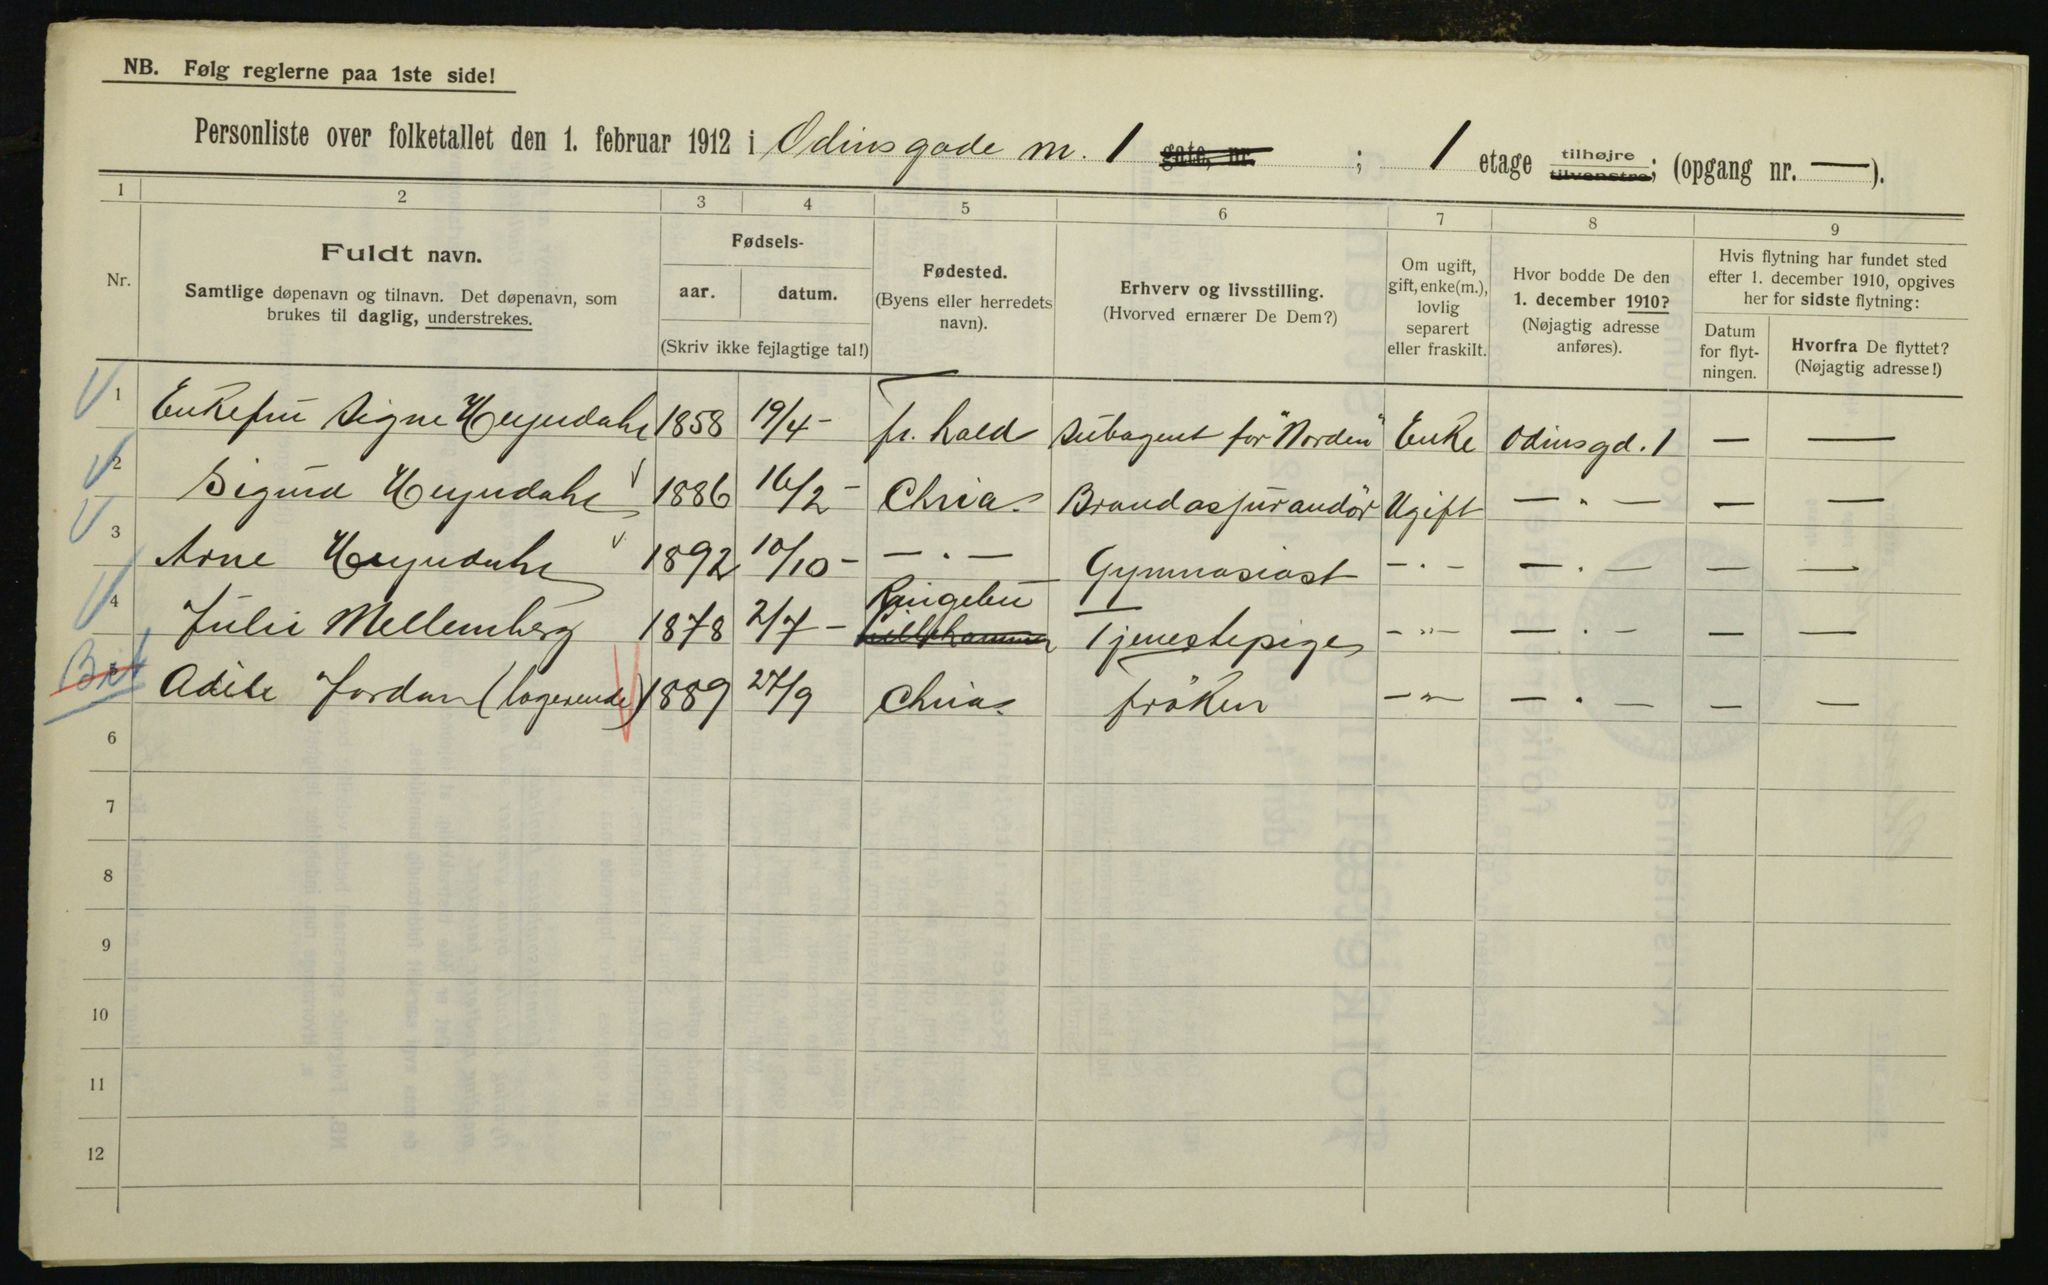 NB. Følg reglerne paa 1ste side!
Personliste over folketallet den 1. februar 1912 i Odinsgade nr. 1 gate, nr. ; 1 etage tilhøjre tilvenstre; (opgang nr. — ).
1 2 3 4 5 6 7 8 9
Nr.
Fuldt navn.
Samtlige døpenavn og tilnavn. Det døpenavn, som
brukes til daglig, understrekes.
Fødsels-
aar. datum.
(Skriv ikke fejlagtige tal!)
Fødested.
(Byens eller herredets
navn).
Erhverv og livsstilling.
(Hvorved ernærer De Dem?)
Om ugift,
gift, enke(m.),
lovlig
separert
eller fraskilt.
Hvor bodde De den
1. december 1910?
(Nøjagtig adresse
anføres).
Hvis flytning har fundet sted
efter 1. december 1910, opgives
her for sidste flytning:
Datum
for flyt-
ningen.
Hvorfra De flyttet?
(Nøjagtig adresse!)
1 Enkefru Signe Heyerdahl 1858 19/4 - fr. hald Subagent for "Norden" Enke Odinsgd. 1 — —
2 Sigurd Heyerdahl 1886 16/2 - Chria. Brandassurandör Ugift — " — — —
3 Arne Heyerdahl 1892 10/10 - — " — Gymnasiast — " — — " — — —
4 Julie Mellemberg 1878 2/7 - Ringebu Lillehammer Tjenestepige — " — — " — — —
Bet
5 Adele Jordan (logerende) 1889 27/9 Chria. fröken — " — — " — — —
6
7
8
9
10
11
12